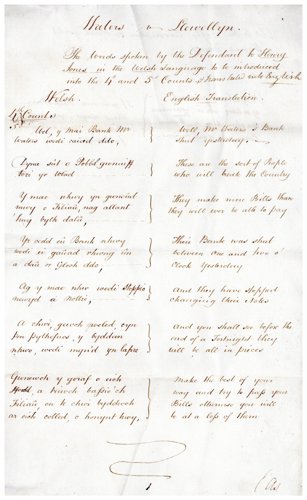 Waters v Llewellyn.
The words spoken by the Defendant to Henry
Jones in the Welsh Language to be introduced
into the 4th and 5th Counts & translated into English
Welsh. English Translation.
4th Count
Wel, y mai Bank Mr Well, Mr Waters's Bank
waters wedi caued ddo, Shut yesterday.
sut o Pobol These are the sort of People
who will break the Country
Y mae nhwy yn gwneud They make more Bills than
mwy o Filiau, nag allant they will ever be able to pay
hwy byth dalu,
Yr oedd ei Bank nhwy Their Bank was shut
wedi ei gauad rhwng between one and two o
a dau o Gloch ddo, Clock yesterday
Ag y mae nhw wedi stoppio And they have Stopped
newid a changing their Notes
A chwi, gewch weled, cyn And you shall see before the
pen pythefnos, y byddan end of a Fortnight they
nhw, wedi myn'd yn will be all in pieces
Gwnewch y goraf o eich Make the best of your
ffordd, a way and try to pass your
Filiau, on te chwi byddwch Bills otherwise you will
ar eich colled, o honynt hwy, be at a loss of them